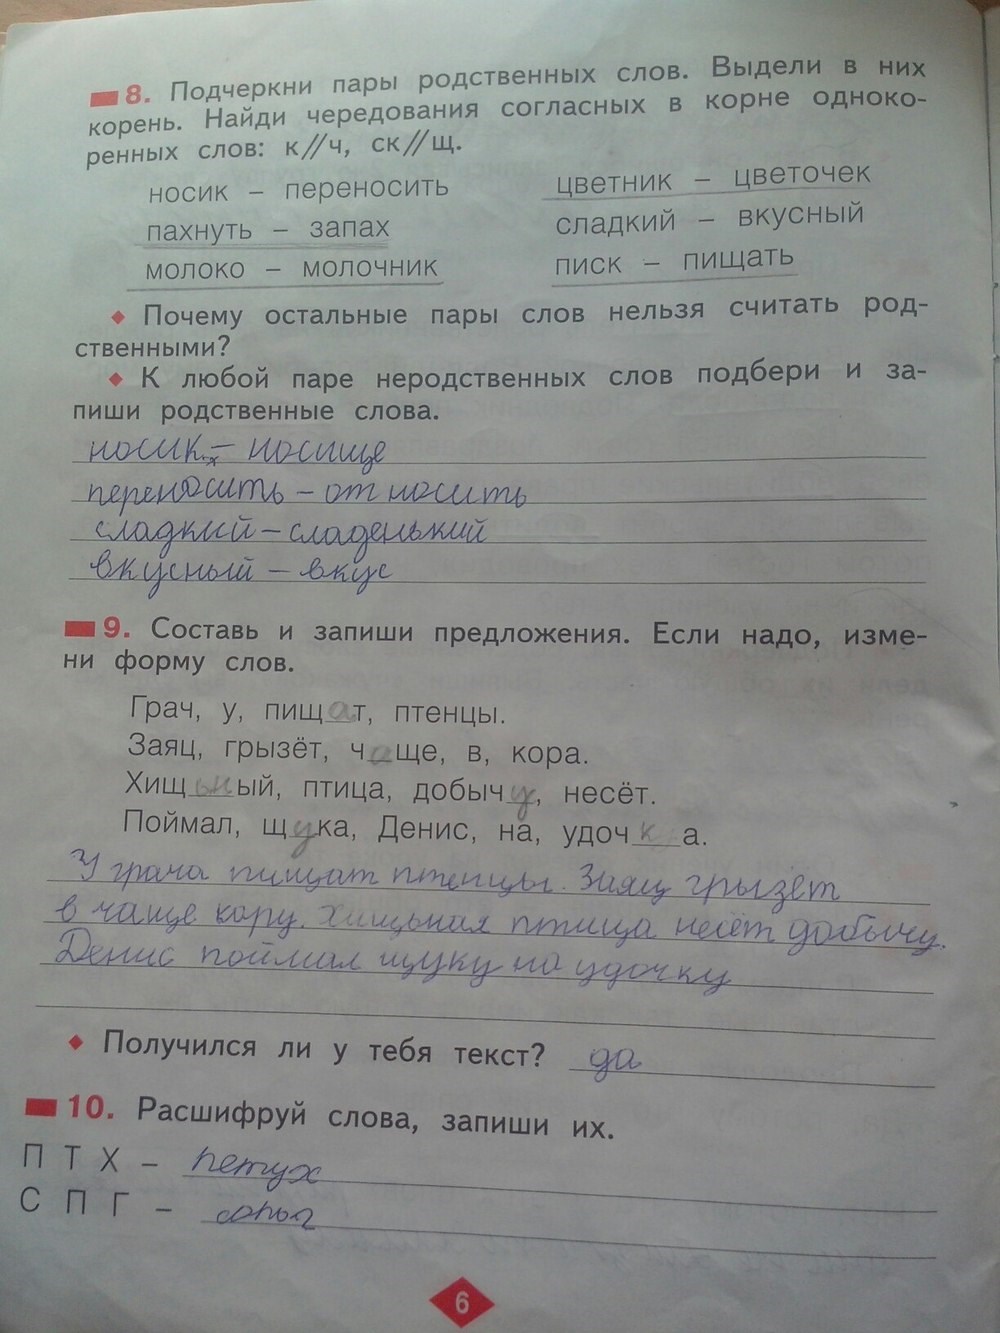 8. Подчеркни пары родственных слов. Выдели в них
корень. Найди чередования согласных в корне одноко-
ренных слов: к//ч, ск//щ.
носик – переносить цветник – цветочек
пахнуть – запах сладкий – вкусный
молоко – молочник писк – пищать
♦ Почему остальные пары слов нельзя считать род-
ственными?
♦ К любой паре неродственных слов подбери и за-
пиши родственные слова.
носик – носище
переносить – относить
сладкий – сладенький
вкусный – вкус
9. Составь и запиши предложения. Если надо, изме-
ни форму слов.
Грач, у, пищат, птенцы.
Заяц, грызёт, чаще, в, кора.
Хищьный, птица, добычу, несёт.
Поймал, щука, Денис, на, удочка.
У грача пищат птенцы. Заяц грызёт
в чаще кору. Хищьная птица несёт добычу.
Денис поймал щуку на удочку
♦ Получился ли у тебя текст? да
10. Расшифруй слова, запиши их.
П Т Х – петух
С П Г –
6